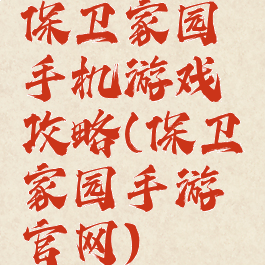 保卫家园
手机游戏
攻略(保卫
家园手游
官网)